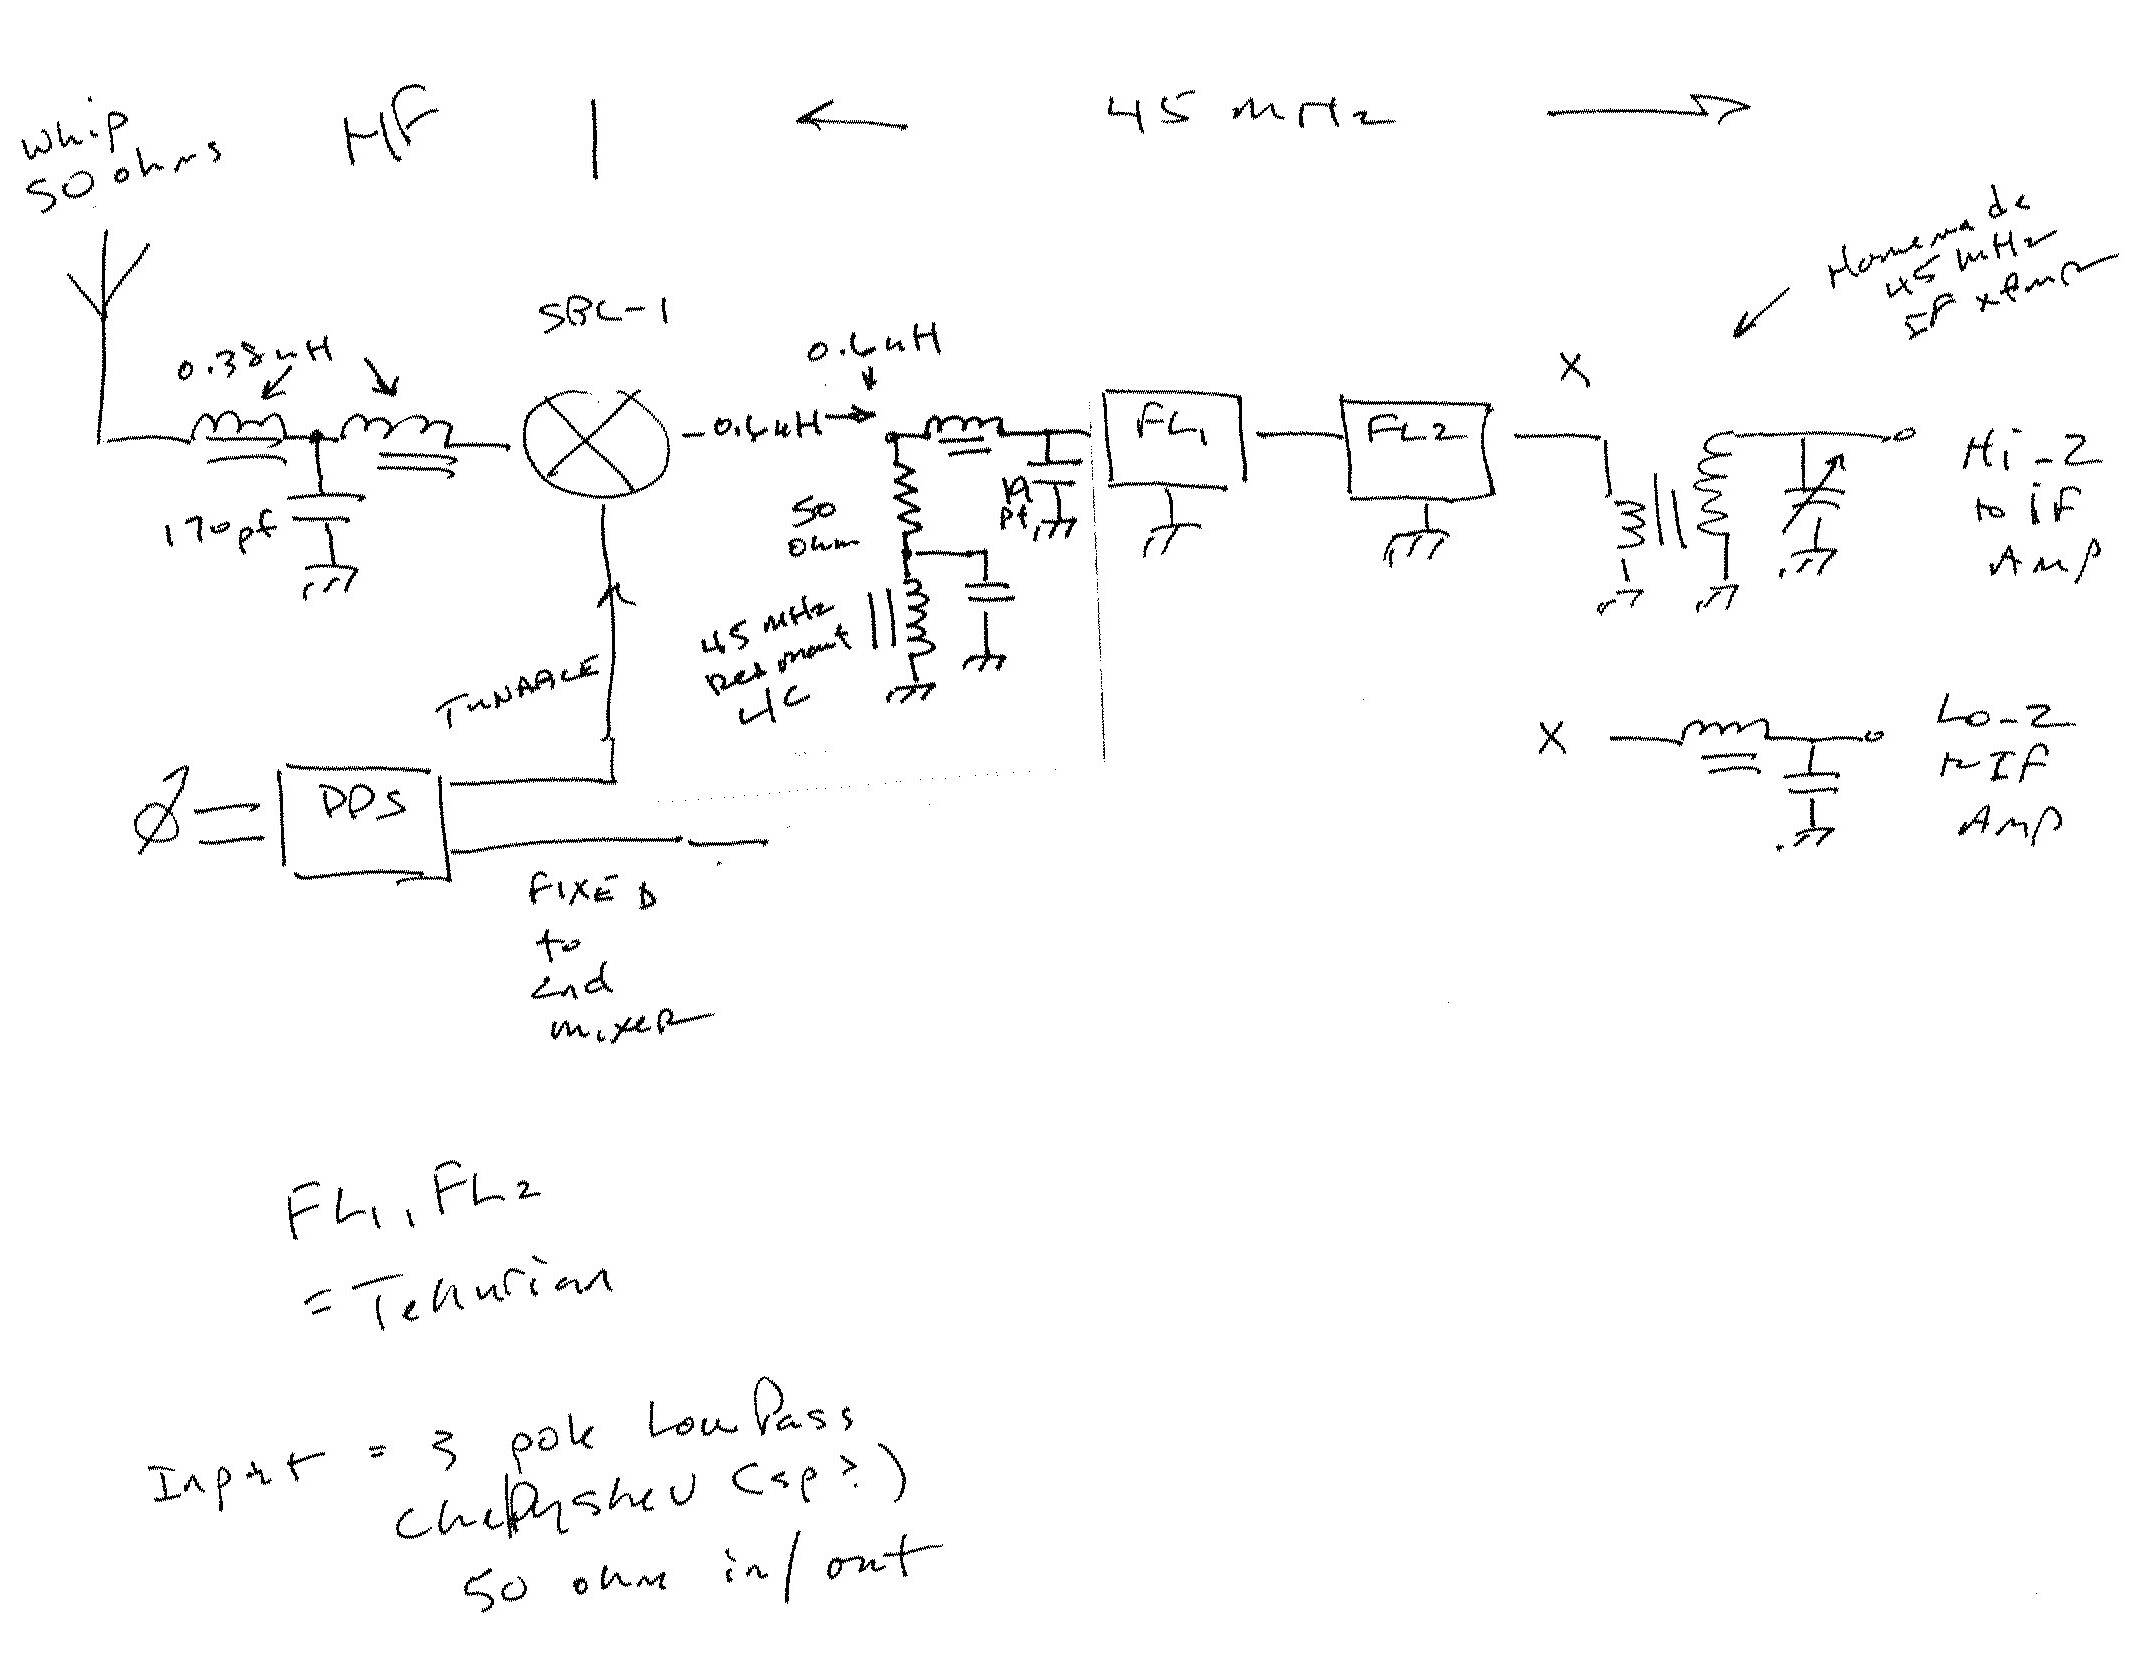 Whip
50 ohms
HF
|
← 45 MHz →
Homemade
45 MHz
IF xfmr
SBL-1
0.38uH
0.6uH
-0.6uH→
X
FL1
FL2
170pf
50
ohm
pf
Hi-Z
to IF
Amp
45 MHz
Resonant
LC
TUNABLE
X
Lo-Z
to IF
Amp
DDS
FIXED
to
2nd
mixer
FL1, FL2
= Tellurian
Input = 3 pole LowPass
Chebyshev (sp?)
50 ohm in/out